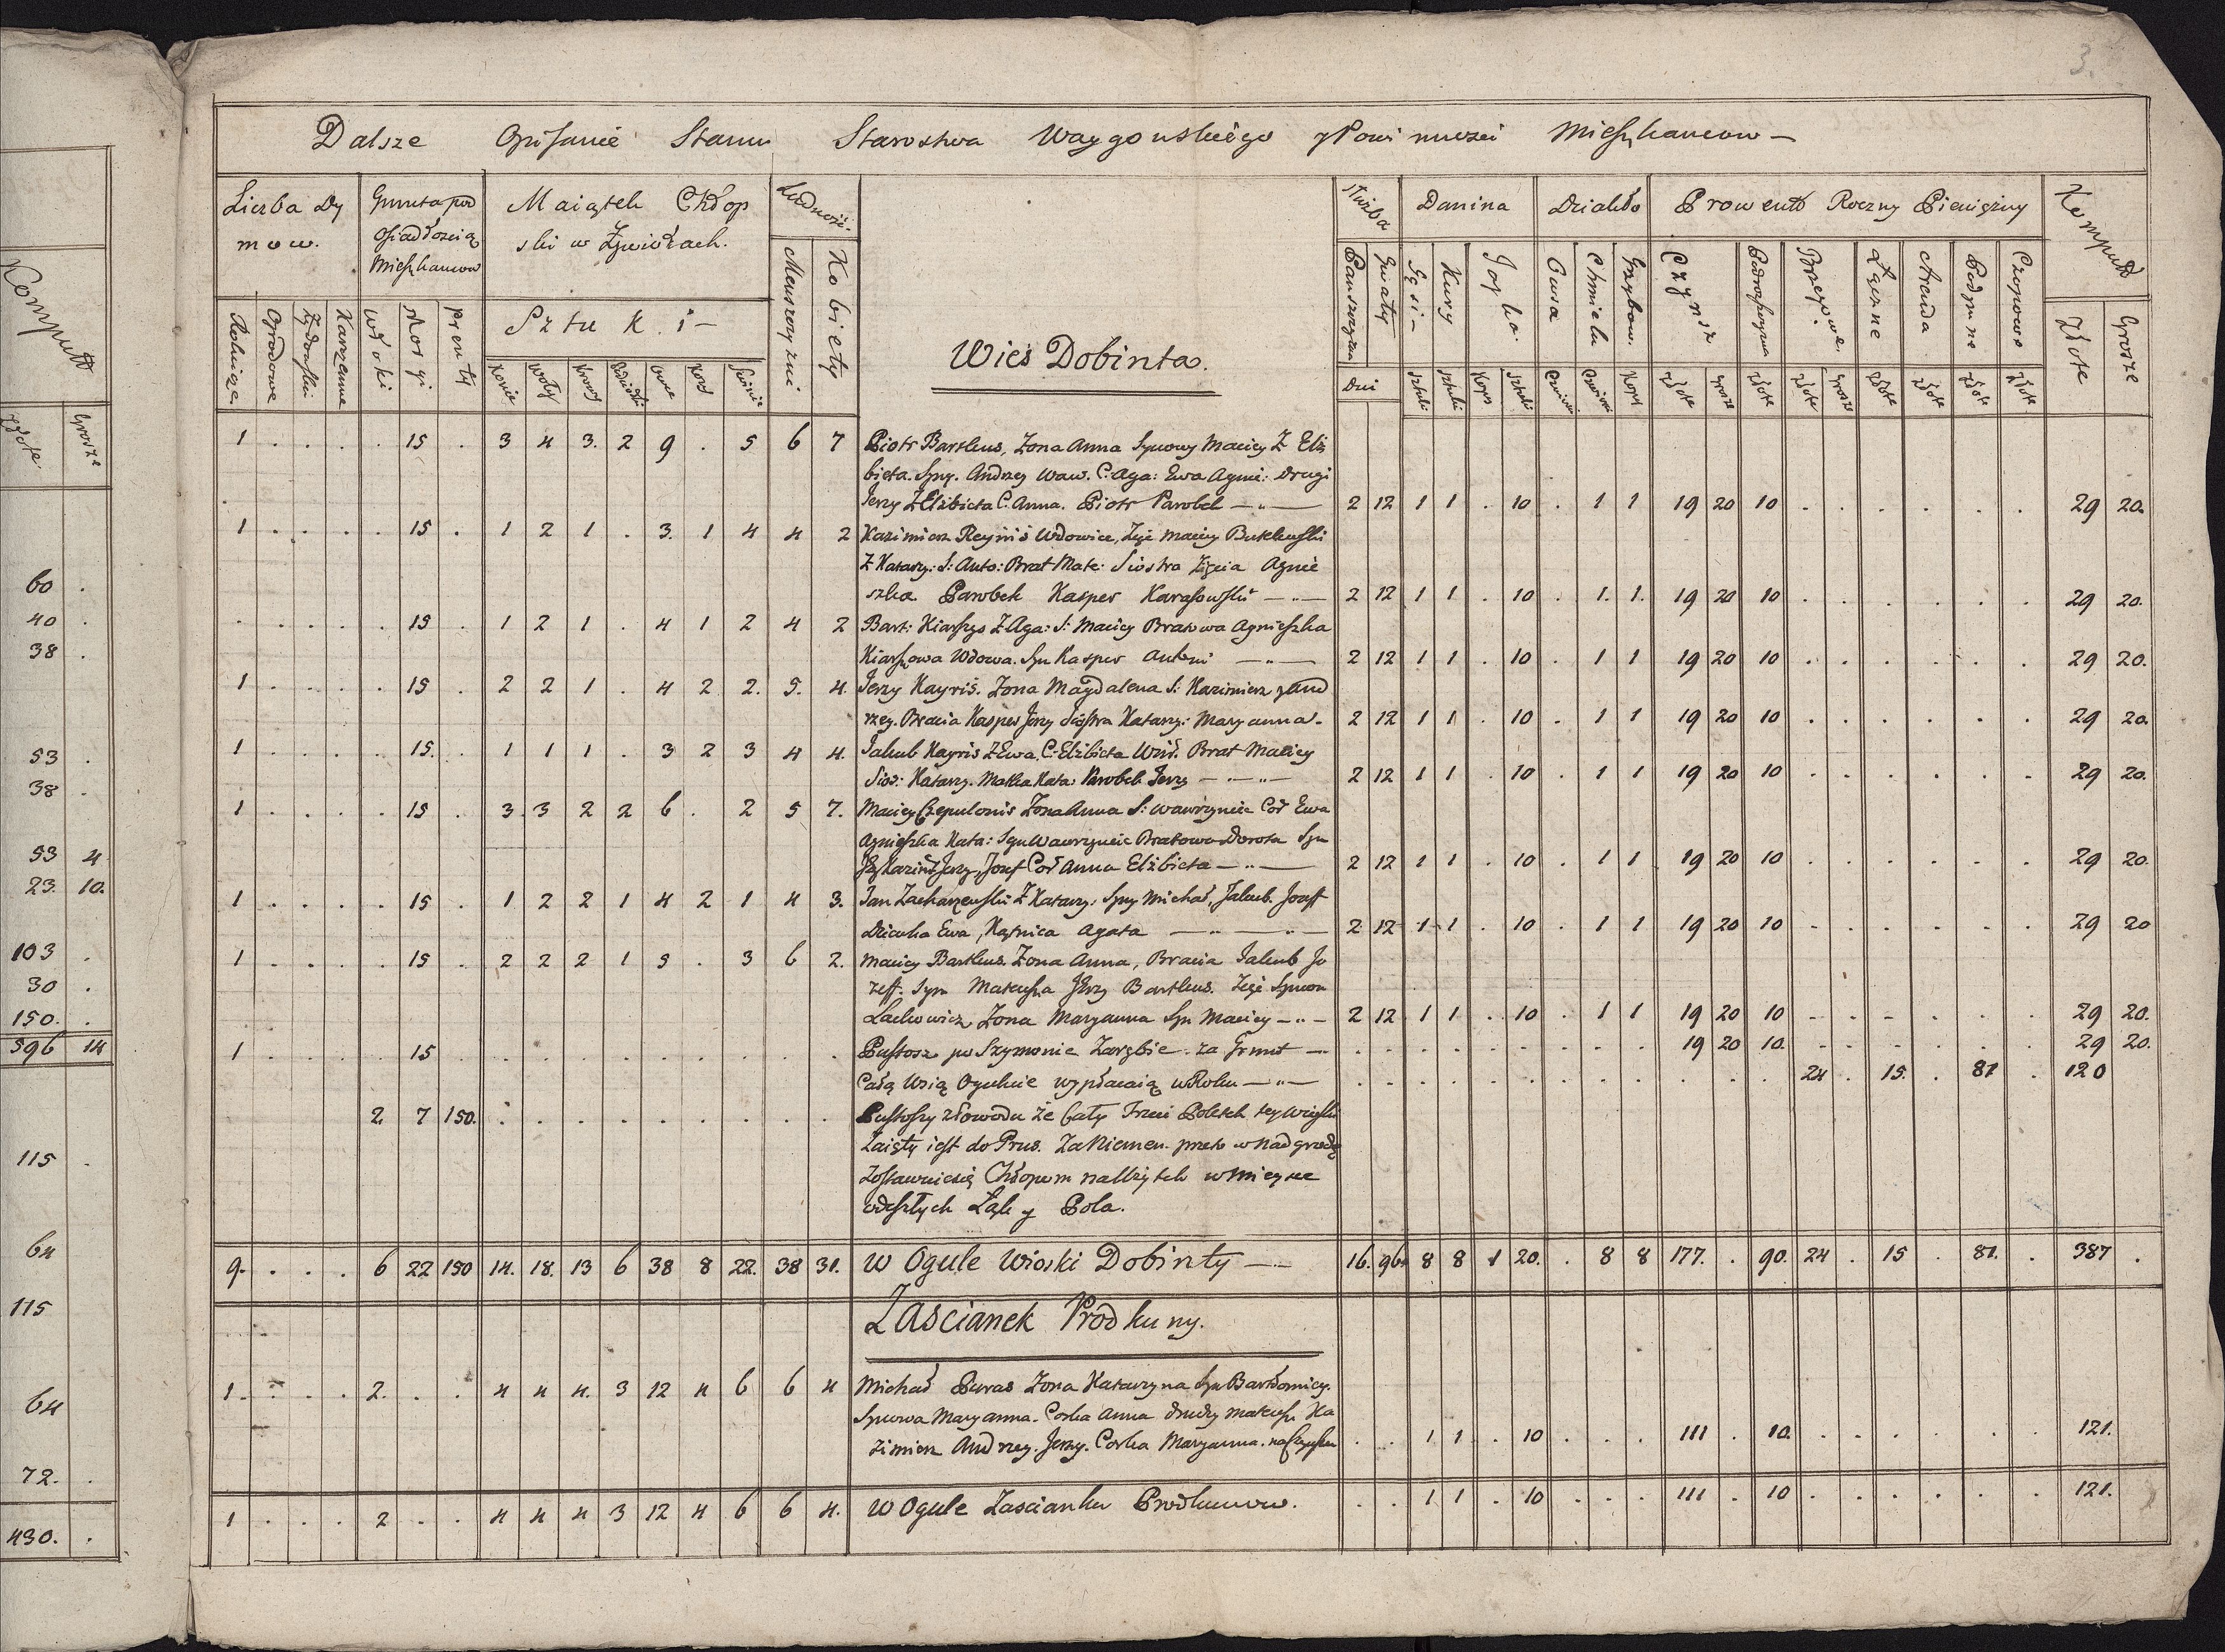 3.
Komputt
Złote. Grosze
60 .
40 .
38 .
53 .
38 .
53 4
23. 10.
103 .
30 .
150. .
596 14
115 .
64
115
64
72. .
430. .
Dalsze Opisanie Stanu Starostwa Waygouskiégo y Powinnosci Mieszkancow —
Liczba Dy
mow.
Grunta pod
Osiadłoscią
Mieszkancow
Maiątek Chłop
ski w Zywiołach.
Sztuk i —
Ludność.
Służba Danina Dziakło Prowentt Roczny Pieniężny Komputt
Rolnicze Ogrodowe Karczemne Włoki Morgi Prenty
Konie Woły Krowy Owce Kozy Świnie
Męszczyzni Kobiety
Pańszczyzna Gwałty Gęsi — Kury Jayka. Owsa Chmielu Grzybow. Czynsz Łączne Arenda Czopowe Złote Grosze
Dni sztuki sztuki Kopy sztuki Kopy Złote Grosze Złote Złote Grosze Złote Złote Złote Złote
Wieś Dobinta.
1 . . . . 15 . 3 4 3. 2 9 . 5 6 7 Piotr Bartkus, Zona Anna Synowy Maciey Z Elż
bieta. Syny. Andrzey Waw. C: Aga: Ewa Agnie: Drugi
Jerzy Z Elżbieta C. Anna. Piotr Parobek —"— 2 12 1 1 . 10 . 1 1 19 20 10 . . . . . . . 29 20.
1 . . . . 15 . 1 2 1 . 3. 1 4 4 2 Kazimierz Reyniś Wdowiec, Zięć Maciey
Z Katarzy: S: Anto: Brat Mate: Siostra Zięcia Agnie
szka. Parobek Kasper Karasowski —"— 2 12 1 1 . 10 . 1. 1. 19 20 10 . . . . . . . 29 20.
. . . . . 15 . 1 2 1 . 4 1 2 4 2 Bart: Kiarszys Z Aga: S: Maciey Bratowa Agnieszka
Kiarszowa Wdowa. Syn Kasper Antoni —"— 2 12 1 1 . 10 . 1 1 19 20 10 . . . . . . . 29 20.
1 . . . . 15 . 2 2 1 . 4 2 2. 5. 4. Jerzy Kayris. Zona Magdalena S: Kazimierz y And
rzey. Bracia Kasper Jerzy Siostra Katarzy: Maryanna. 2 12 1 1 . 10 . 1 1 19 20 10 . . . . . . . 29 20.
1 . . . . 15. . 1 1 1 . 3 2 3 4 4. Jakub Kayris Z Ewa, C. Elżbieta Brat Maciey
Sios: Katarzy. Matka Kata: Parobek Jerzy —"— 2 12 1 1 . 10 . 1 1 19 20 10 . . . . . . . 29 20.
1 . . . . 15 . 3. 3 2 2 6 . 2 5 7. Maciey Czepulonis Zona Anna S: Wawrzyniec Cór Ewa
Agnieszka Kata: Syn Wawrzyniec Bratowa Dorota Syn
Jerzy, Jozef Cór Anna Elżbieta —"— 2 12 1 1 . 10 . 1 1 19 20 10 . . . . . . . 29 20.
1 . . . . 15 . 1 2 2 1 4 2 1 4 3. Jan Zacharzewski Z Katarzy. Syny Michał, Jakub. Joseff
Dziewka Ewa, Kątnica Agata —"— 2 12 1 1 . 10 . 1 1 19 20 10 . . . . . . . 29 20
1 . . . . 15 . 2 2 2 1 5 . 3 6 2. Maciey Bartkus. Zona Anna, Bracia Jakub Jo
zeff. Syn Mateusza Jerzy Bartkus. Zięć Symon
Lachowicz Zona Maryanna Syn Maciey —"— 2 12 1 1 . 10 . 1 1 19 20 10 . . . . . . . 29 20.
1 . . . . 15 . . . . . . . . . . Pustosz po Szymonie Zarębie. za Grunt — . . . . . . . . . 19 20 10. . . . . . . . 29 20.
Całą Wsią Ogulnie wypłacaią w Roku —"— . . . . . . . . . . . . 24 . 15. . 81 . 120
2. 7 150. . . . . . . . . . Pustoszy z Powodu że Cały Trzeci Poletek tey Wioski
Zaięty iest do Prus. Za Niemen. przeto w Nadgrodę
Zostawuiesię Chłopom na Użytek w Mieysce
odeszłych Łąk y Pola.
9. . . . 6 22 150 14. 18. 13 6 38 8 22. 38 31. W Ogule Wioski Dobinty — 16. 96. 8 8 1 20. . 8 8 177. . 90. 24 . 15 . 81. . 387 .
Zascianek Prodkuny.
1. . . . 2. . . 4 4 4. 3 12 4 6 6 4 Michał Puras Zona Katarzyna Syn Bartłomiey.
Synowa Maryanna. Corka Anna drudzy Mateusz Ka
zimierz Andrzey. Jerzy. Corka Maryanna. na Czynszu . . 1 1 . 10 . . . 111 . 10. . . . . . . . 121.
1 . . . 2 . . 4 4 4 3 12 4 6 6 4. W Ogule Zascianku Prodkunow. . . 1 1 . 10 . . . 111 . 10 . . . . . . . 121.